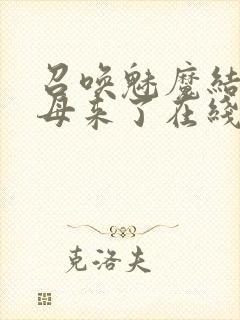 召唤魅魔结
母来了在线
克洛夫